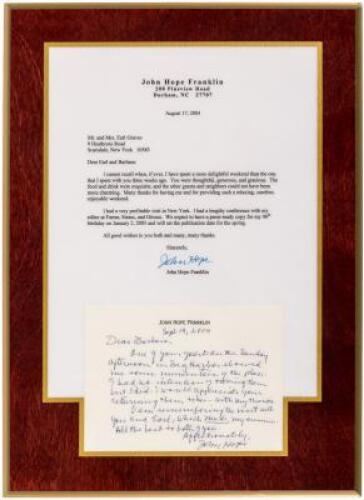 John Hope Franklin
208 Pineview Road
Durham, NC 27707
August 17, 2004
Mr. and Mrs. Earl Graves
Scarsdale, New York 10583
Dear Earl and Barbara:
I cannot recall when, if ever, I have spent a more delightful weekend than the one
that I spent with you three weeks ago. You were thoughtful, generous, and gracious. The
food and drink were exquisite, and the other guests and neighbors could not have been
more charming. Many thanks for having me and for providing such a relaxing, carefree,
enjoyable weekend.
I had a very profitable visit in New York. I had a lengthy conference with my
editor at Farrar, Straus, and Giroux. We expect to have a press-ready copy for my 90th
birthday on January 2, 2005 and will set the publication date for the spring.
All good wishes to you both and many, many thanks.
Sincerely,
John Hope
John Hope Franklin
JOHN HOPE FRANKLIN
Sept 19, 2004
Dear Barbara,
One of your guests on the Sunday
afternoon in Sag Harbor showed
me some of the place.
I had no intention of taking them
but I did. I would appreciate your
returning them, with my thanks.
I am remembering the visit with
you and Earl, which made my summer.
All the best to both of you.
Affectionately,
John Hope